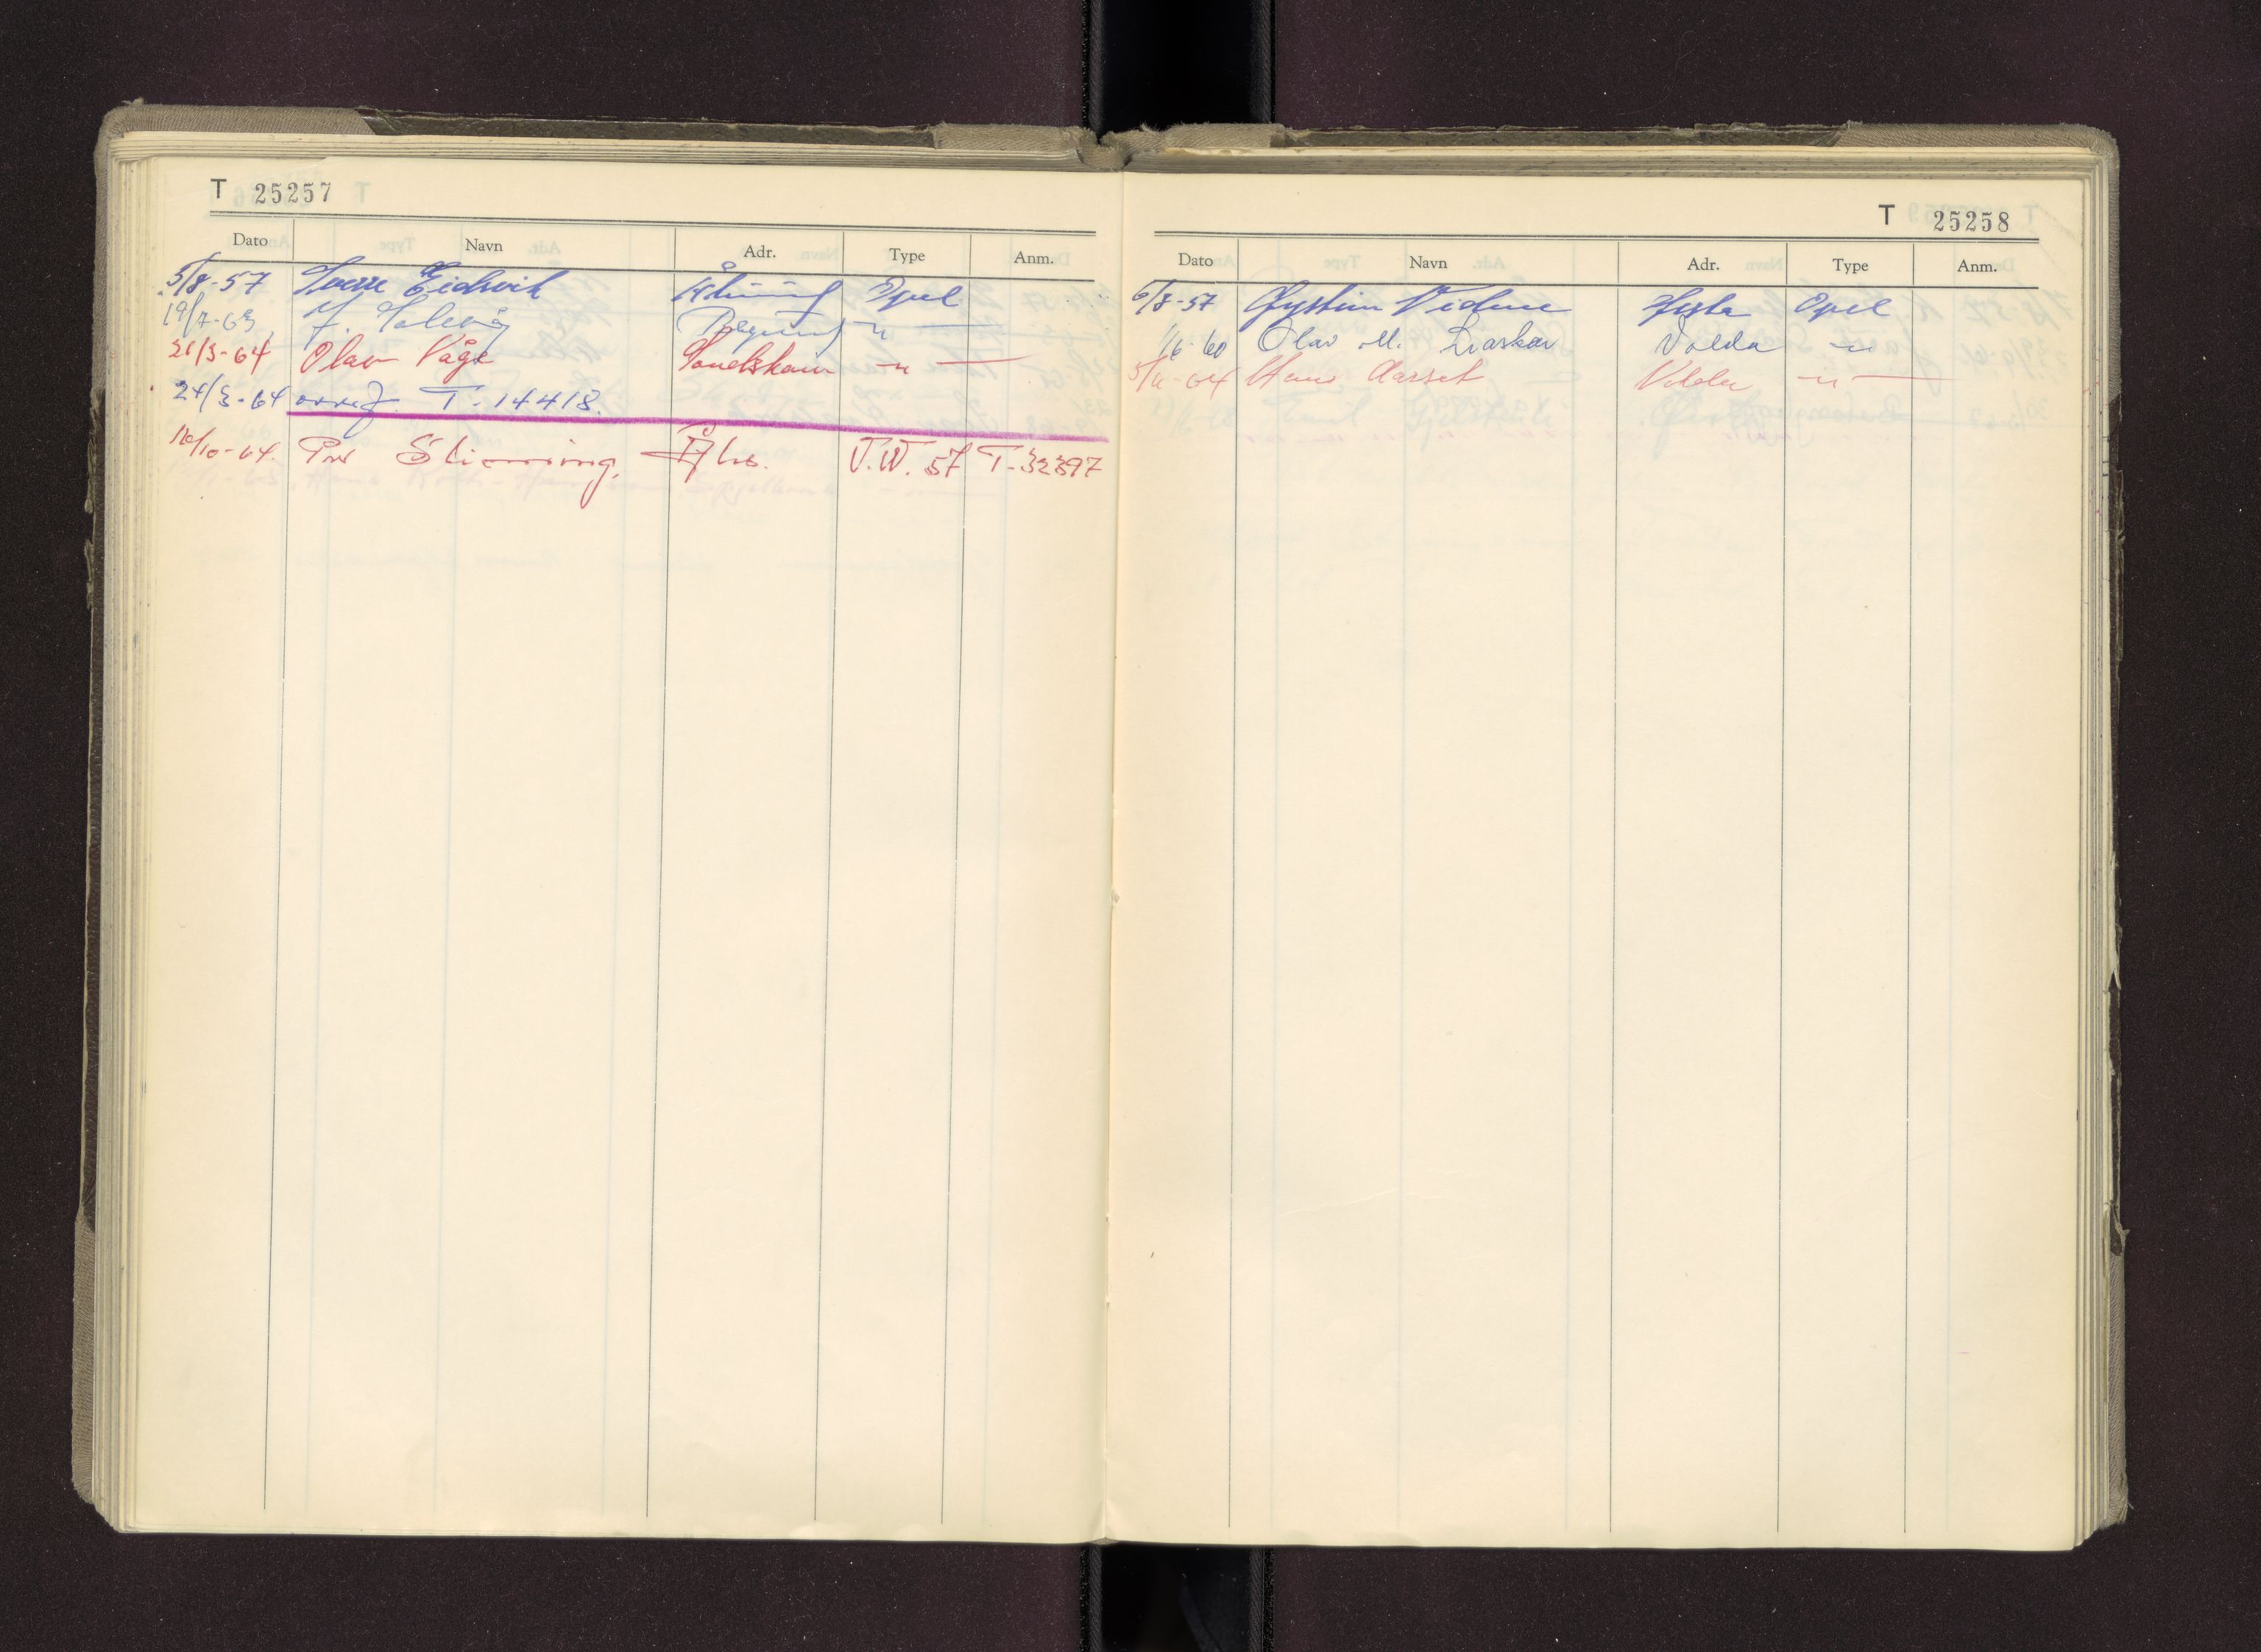 T 25257
Dato Navn Adr. Type Anm.
5/8-57 Sverre Eidsvik Opel
19/7-63 — " —
21/3-64 Olav Våge Sandshamn — " —
24/3-64 T-14418.
16/10-64. Per Åles. V.W. 57 T-32397
T 25258
Dato Navn Adr. Type Anm.
6/8-57 Øystein Vidnes Ørsta Opel
1/6-60 Olav M. Volda — " —
5/11-64 Hans Aarset Volda — " —